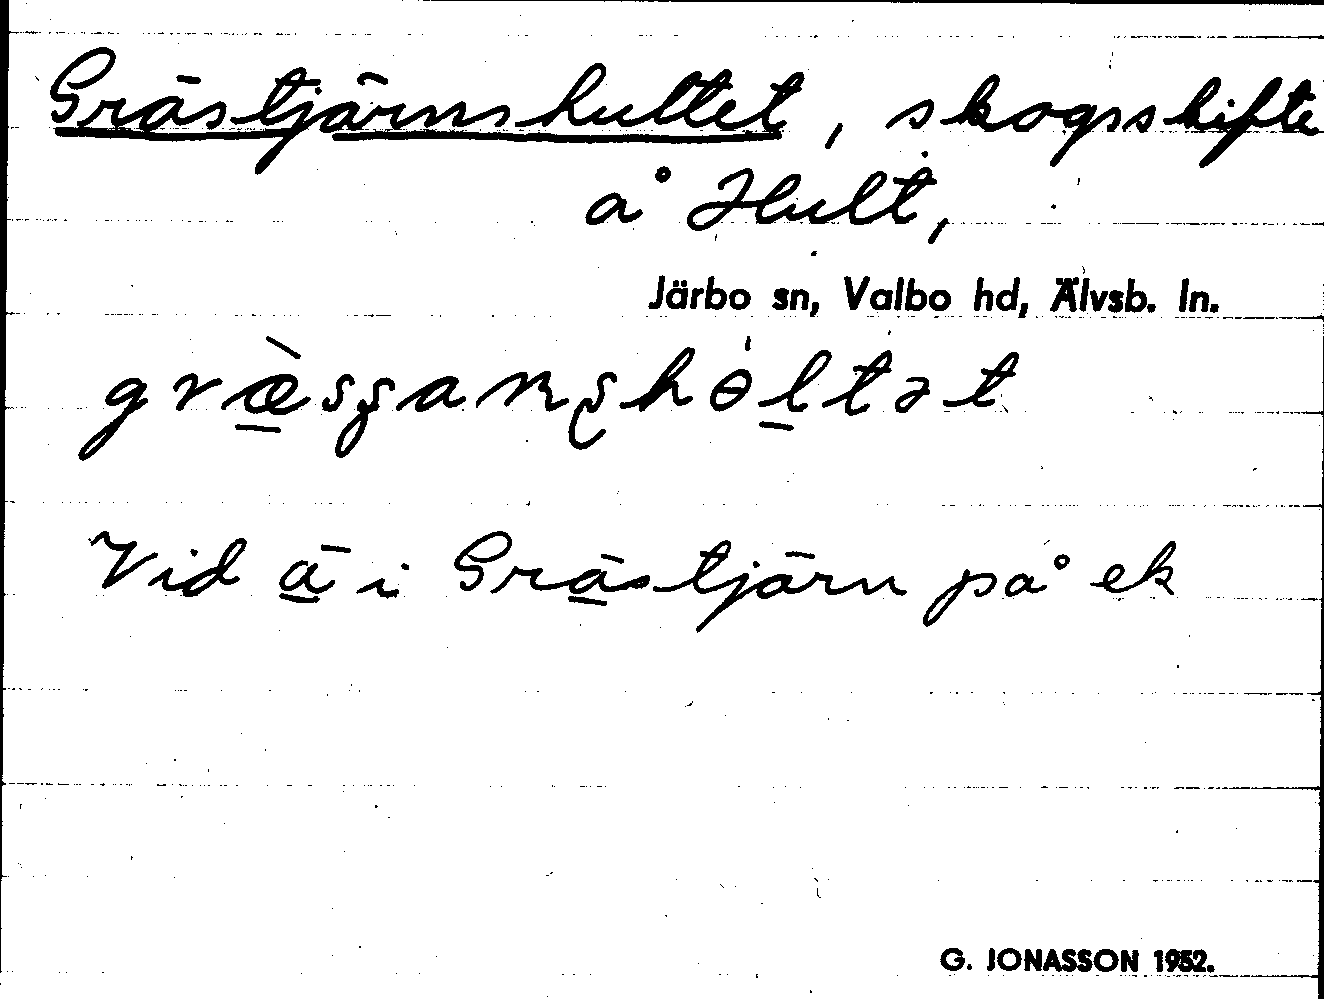 Grästjärnshultet, skogsskifte
å Hult,
Järbo sn, Valbo hd, Älvsb. ln.
Vid ä i Grästjärn på ek
G. JONASSON 1952.